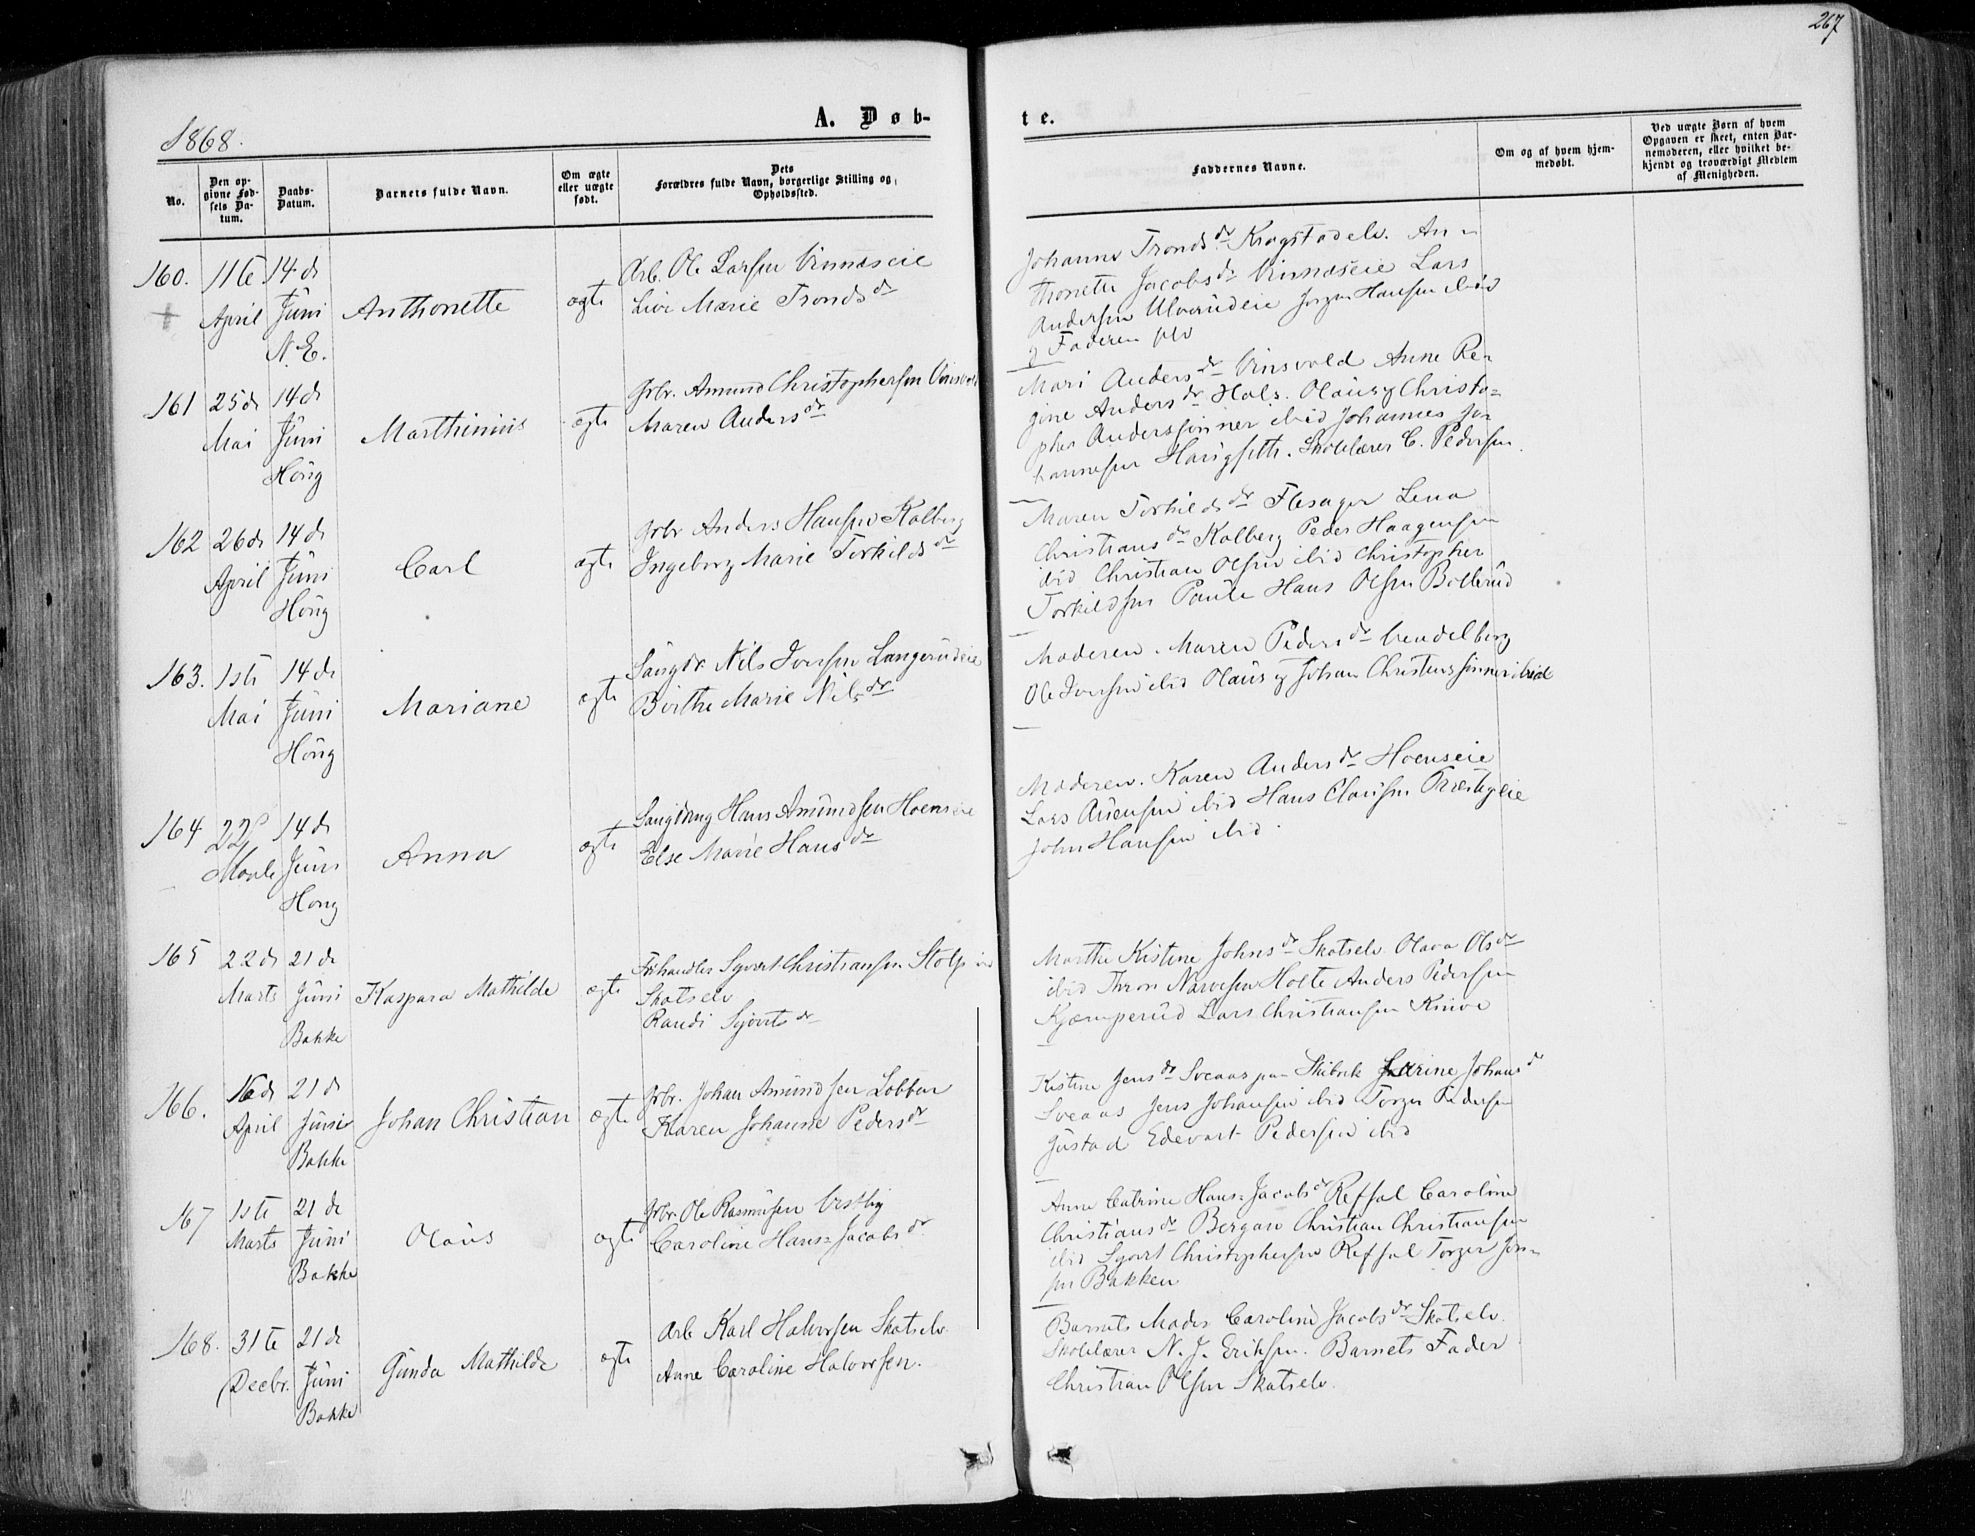 267
1868.
A. Døb-
te.
No.
Den op-
givne Fød-
sels Da-
tum.
Daabs-
Datum.
Barnets fulde Navn.
Om ægte
eller uægte
født.
Dets
Forældres fulde Navn, borgerlige Stilling og
Opholdssted.
Faddernes Navne.
Om og af hvem hjem-
medøbt.
Ved uægte Børn af hvem
Opgaven er skeet, enten Bar-
nemoderen, eller hvilket be-
kjendt og troværdigt Medlem
af Menigheden.
160. 11te 14de
April Juni
N.E.
Anthonette
ægte
Arb. Ole Larsen Vinnæseie
Live Marie Tronds dr
Johanne Tronds dr Krogstadelv. An-
thonette Jacobs dr Vinnæseie Lars
Andersen Ulverudeie Jørgen Hansen ibid
og Faderen selv
161 25de 14de
Mai Juni
Houg
Marthinius
ægte
Grbr. Amund Christophersen
Maren Anders dr
Mari Anders dr Vinsvold Anne Re-
gine Anders dr Hals. Olaus og Christo-
pher Anderssønner ibid Johannes Jo-
hannesen Skolelærer C. Pedersen.
162 26de 14de
April Juni
Houg
Carl
ægte
Grbr Anders Hansen Kolberg
Ingeborg Marie Torkilds dr
Maren Torkilds dr Flesager Lena
Christians dr Kolberg Peder Haagensen
ibid Christian Olsen ibid Christopher
Torkildsen Hans Olsen Bollerud
163. 1ste 14de
Mai Juni
Houg
Mariane
ægte
Nils Iversen Langerudeie
Birthe Marie Nils dr
Moderen. Maren Peders dr Vendelborg
Ole Iversen ibid Olaus og Johan Christenssønner ibid
164 22de 14de
Juni
Houg
Anna
ægte
Hans Amundsen Hoenseie
Else Marie Hans dr
Moderen. Karen Anders dr Hoenseie
Lars ibid Hans Clausen
John Hansen ibid.
165 22de 21de
Marts Juni
Bakke
Kaspara Mathilde
ægte
Syvert Christiansen Stolp
Skotselv
Randi Syverts dr
Marthe Kistine Johns dr Skotselv Olava Ols dr
ibid Thron Narvesen Holte Anders Pedersen
Kjæmperud Lars Christiansen Knive
166. 16de 21de
April Juni
Bakke
Johan Christian
ægte
Grbr. Johan Amundsen Lobben
Karen Johanne Peders dr
Kistine Jens dr Sveaas paa Skibvik Johans dr
Sveaas Jens Johansen ibid Torger Pedersen
Justad Edevart Pedersen ibid
167 1ste 21de
Marts Juni
Bakke
Olaus
ægte
Grbr. Ole Rasmusen Vestby
Caroline Hans-Jacobs dr
Anne Catrine Hans-Jacobs dr Refsal Caroline
Christians dr Bergan Christian Christiansen
ibid Syvert Christophersen Refsal Torger Jen-
sen Bakken
168. 31te 21de
Decbr. Juni
Bakke
Gunda Mathilde
ægte
Arb Karl Halvorsen Skotselv
Anne Caroline Halvorsen.
Barnets Moder Caroline Jacobs dr Skotselv.
Skolelærer N. J. Eriksen. Barnets Fader
Christian Olsen Skotselv.